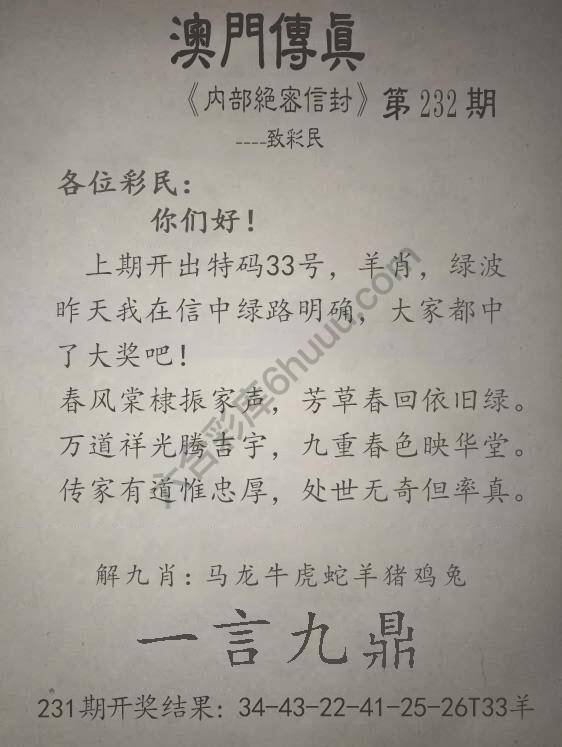 澳門傳眞
《内部絕密信封》第232期
----致彩民
各位彩民：
你们好！
上期开出特码33号，羊肖，绿波
昨天我在信中绿路明确，大家都中
了大奖吧！
春风棠棣振家声，芳草春回依旧绿。
万道祥光腾吉宇，九重春色映华堂。
传家有道惟忠厚，处世无奇但率真。
解九肖：马龙牛虎蛇羊猪鸡兔
一言九鼎
231期开奖结果：34-43-22-41-25-26T33羊
六合彩库6huuu.com